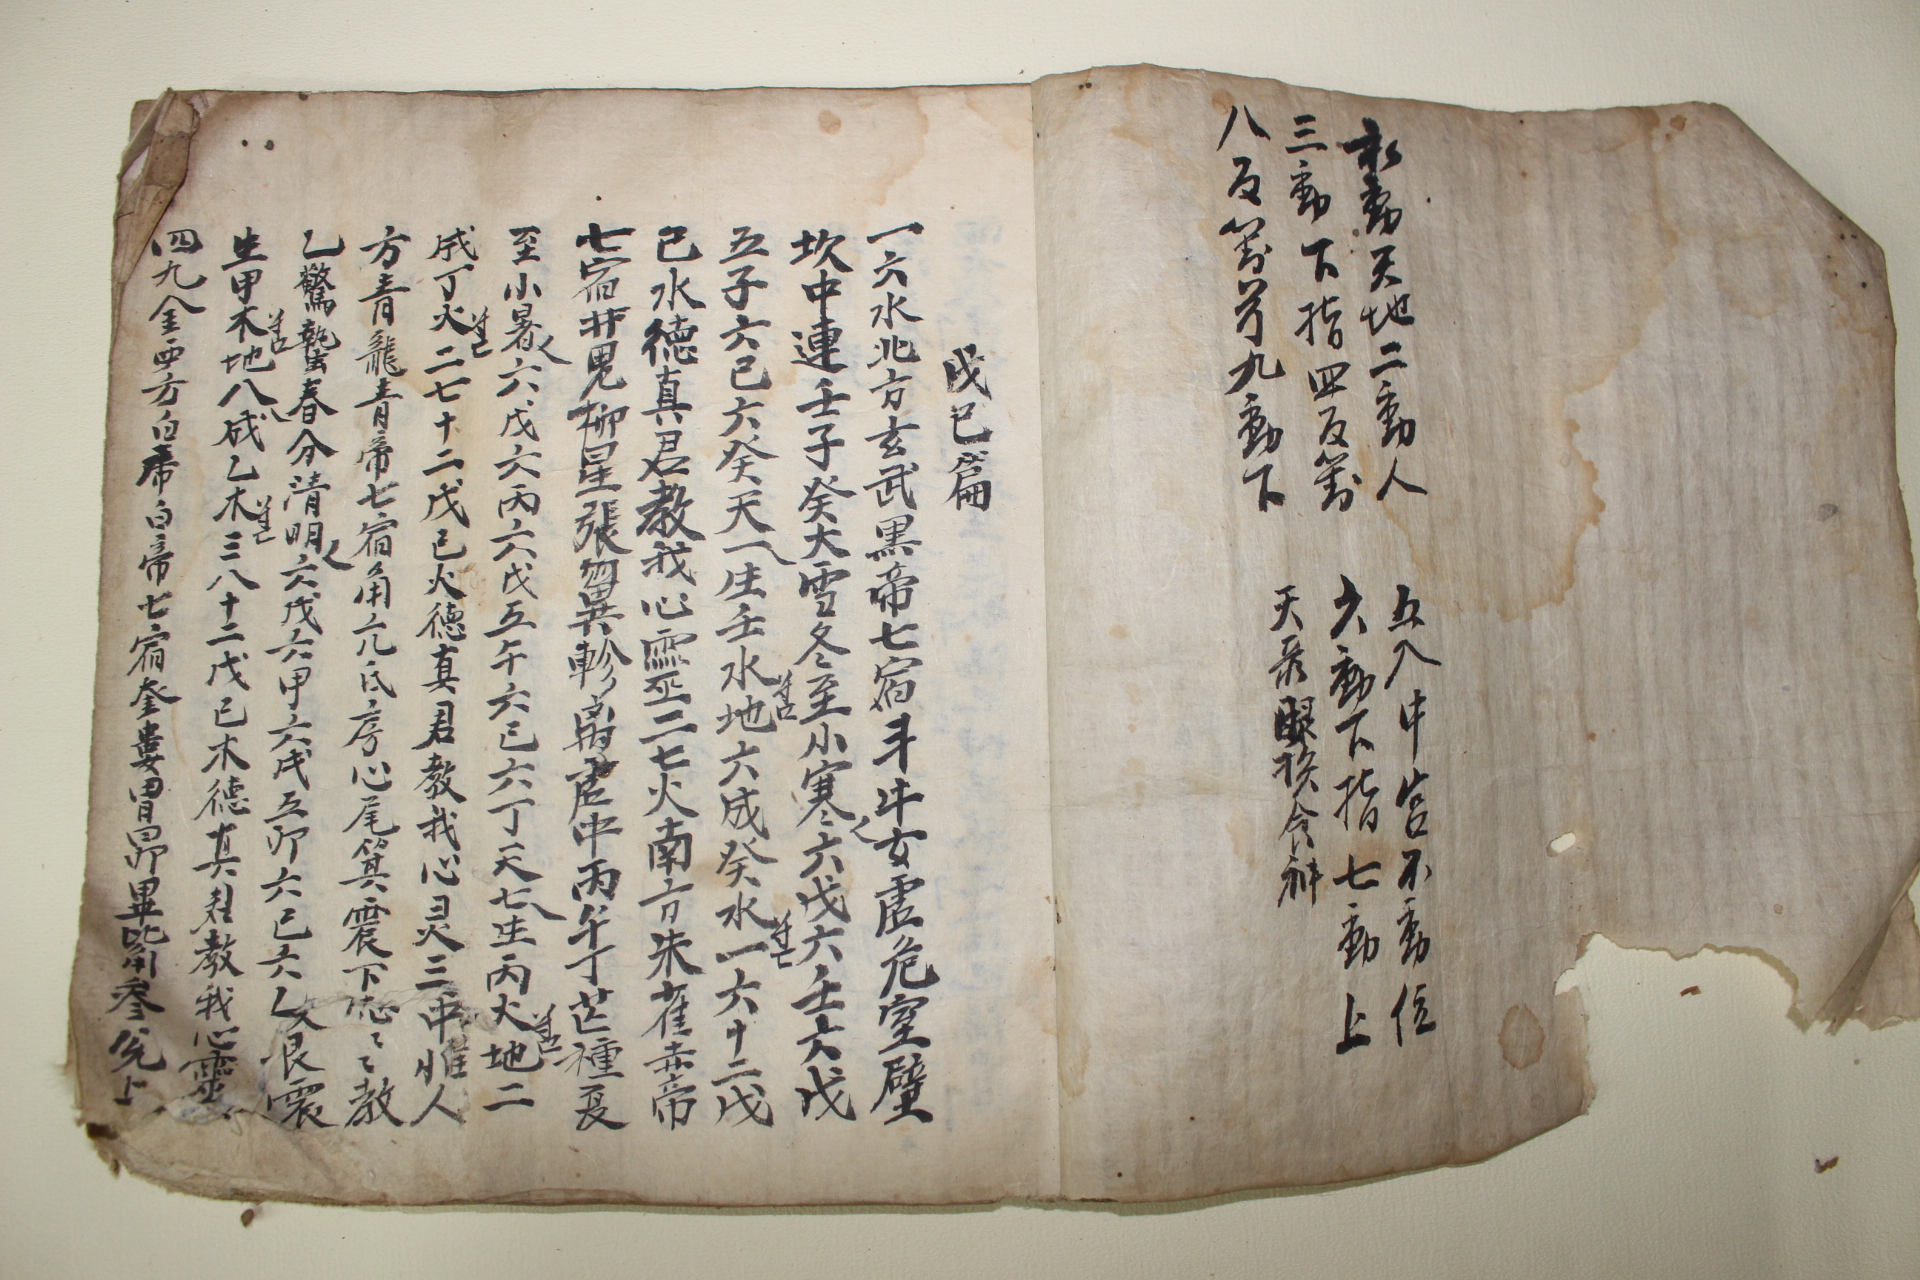 動天地二動人
三動下指四反對
八反對 九動下
五入中宮不動位
六動下指七動上
天 眼 食神
戊己篇
一六水北方玄武黑帝七宿斗牛女虛危室壁
坎中連壬子癸大雪冬至小寒六戊六壬六戊
五子六己六癸天一生壬水地六成癸水一六十二戊
己水德真君教我心靈二七火南方朱雀赤帝
七宿井鬼柳星張翼軫离虛中丙午丁芒種夏
至小暑六戊六丙六戊五午六己六丁天七生丙火地二
成丁火二七十二戊己火德真君教我心灵三中惟人
方青龍青帝七宿角亢氐房心尾箕震下教
乙驚蟄春分清明六戊六甲六戊五卯六己六乙艮震
生甲木地八成乙木三八十二戊己木德真君教我心靈
四九金西方白帝白帝七宿奎婁胃昴畢觜參兌上